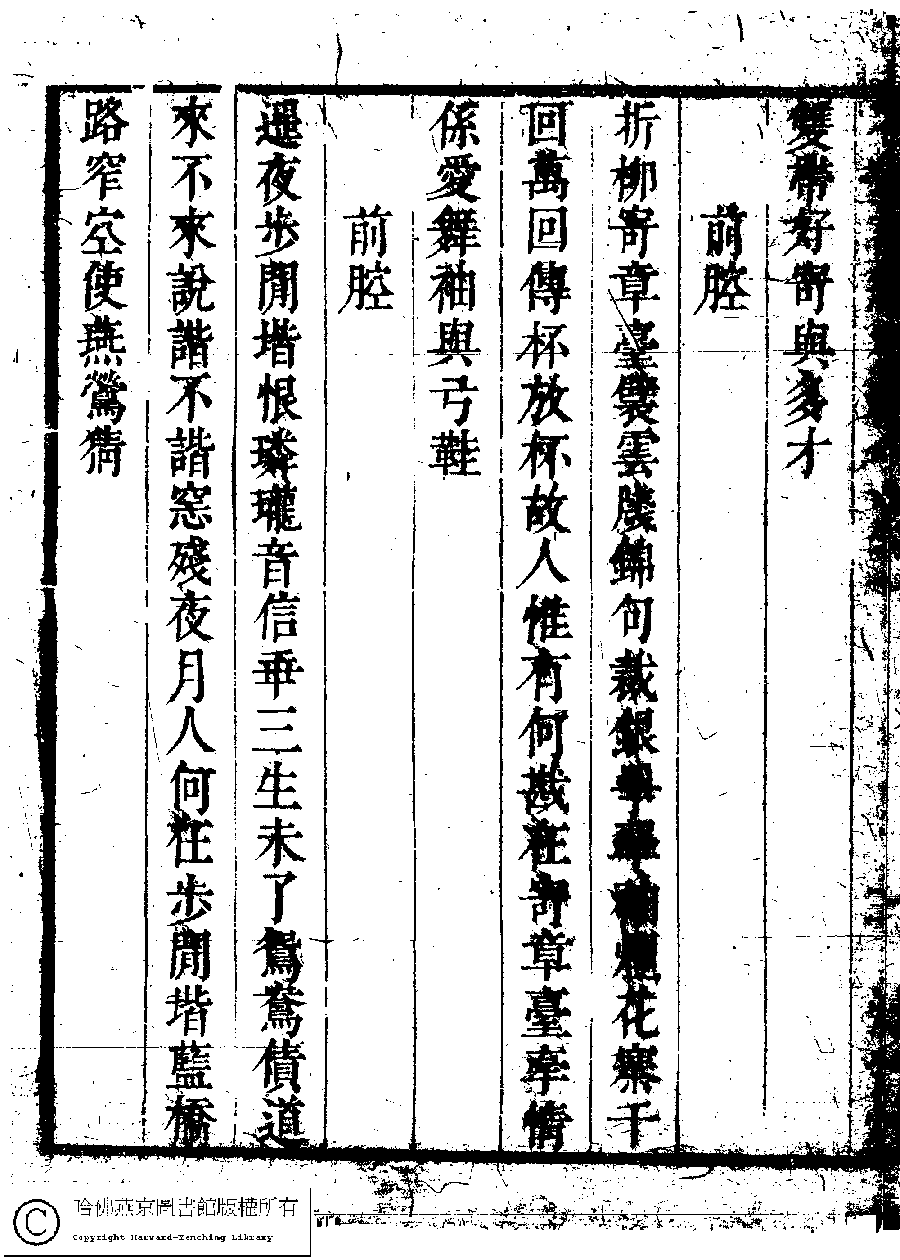 雙帶好寄與多才
前腔
折柳寄章臺襞雲牋錦句裁銀花案千
回萬回傳杯放杯故人惟有何戡在寄章臺牽情
係愛舞袖與弓鞋
前腔
遲夜步閒堦恨璘瓏音信乖三生未了鴛鴦債道
來不來說諧不諧窓殘夜月人何在步閒堦藍橋
路窄空使燕鶯猜
哈佛燕京圖書館版權所有
Copyright Harvard-Yenching Library